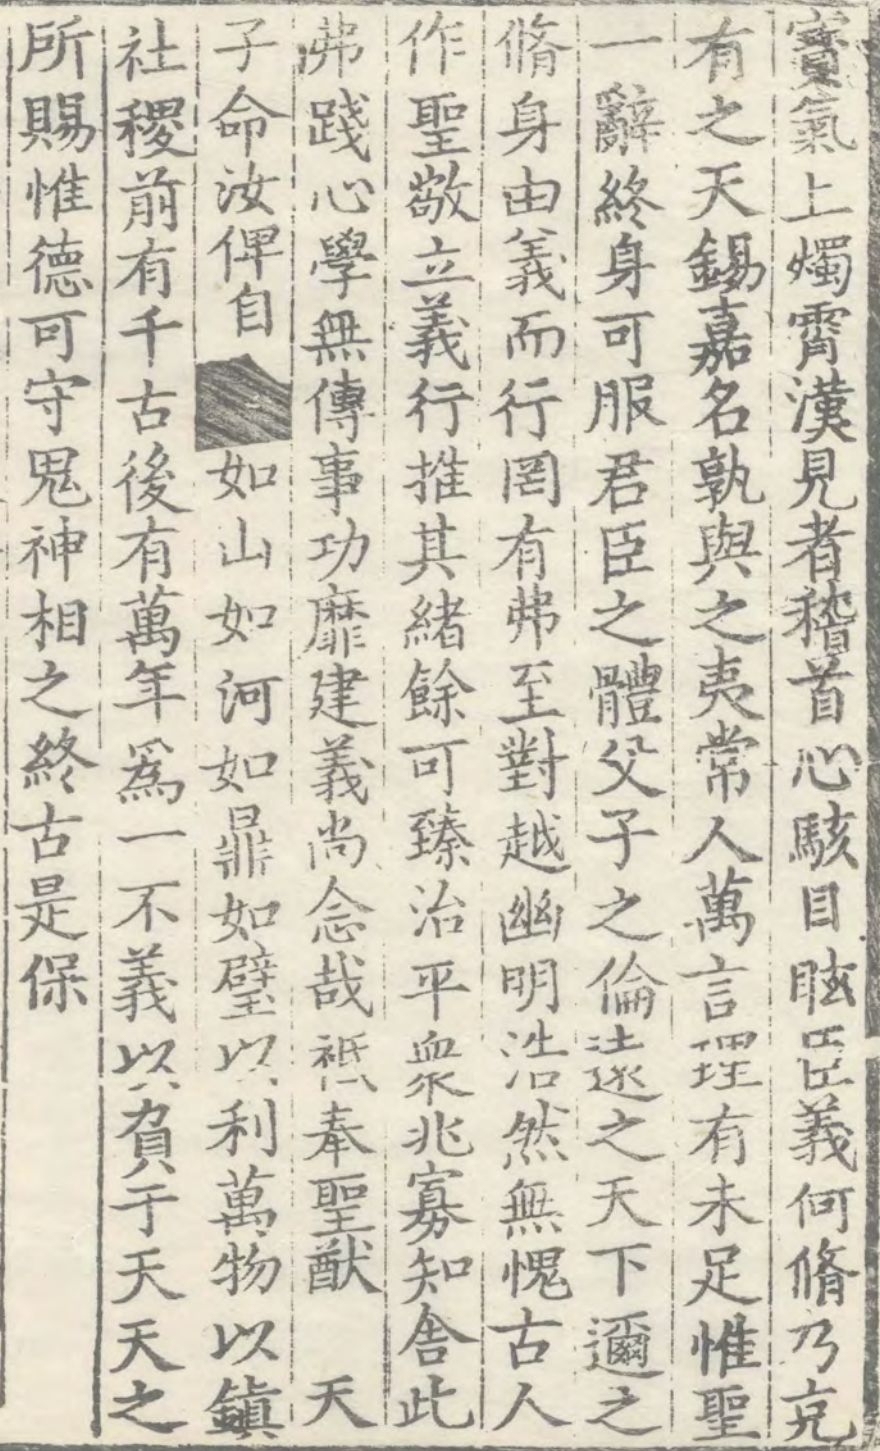 寳氣上燭霄漢見者稽首心駭目眩臣義何脩乃克
有之天錫嘉名孰與之夷常人萬言理有未足惟聖
一辭終身可服君臣之體父子之倫遠之天下邇之
脩身由義而行罔有弗至對越幽明浩然無愧古人
作聖敬立義行推其緒餘可臻治平衆兆寡知舍此
弗踐心學無傳事功靡建義尚念哉祗奉聖猷　天
子命汝俾自如山如河如鼎如璧以利萬物以鎮
社稷前有千古後有萬年爲一不義以負于天天之
所賜惟德可守鬼神相之終古是保